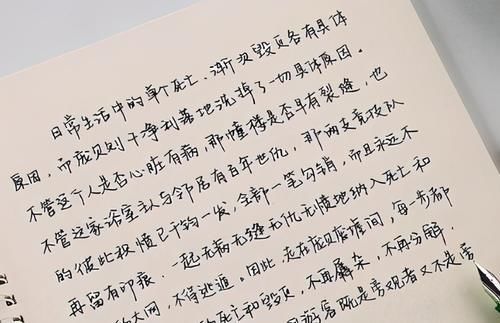 日常生活中的单个死亡、渐次毁灭各有具体
原因，而废贝则干净利落地洗掉了一切具体原因。
不管这个人是否心脏有病，那幢楼是否早有裂缝，也
不管这家浴室主人与邻居有百年世仇，那两支竞技队
的彼此积愤已千钧一发，全部一笔勾销，而且永远不
再留有印痕。一起无病无缝无仇无愤地纳入死亡和
的大网，不得逃遁。因此，走在庞贝废墟间，每一步都
的死亡和毁灭，不再羼杂，不再分解。
既是旁观者又不是旁